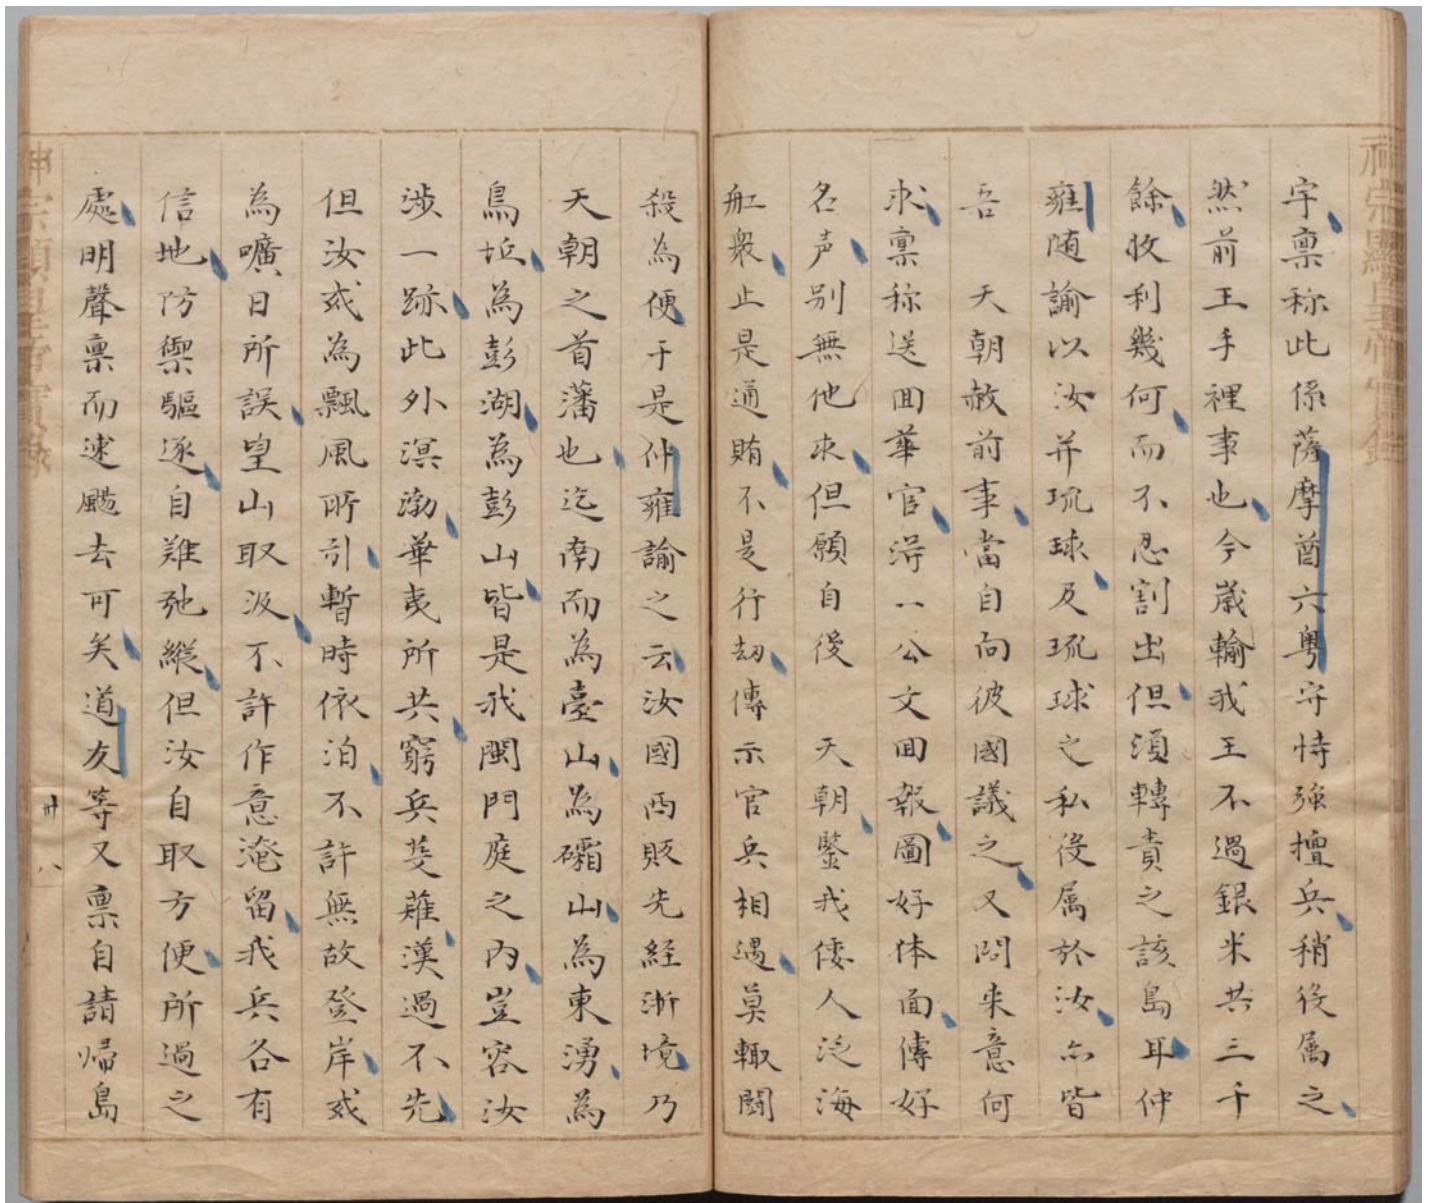 字稟称此係薩摩酋六粤守恃強擅兵稍役属之
然前王手裡事也今歳輸我王不過銀米共三千
餘收利幾何而不忍割出但須轉責之該島耳仲
雍随諭以汝并琉球及琉球之私役属於汝亦皆
吾　天朝赦前事當自向彼國議之又問来意何
求稟称送回華官淂一公文回報圖好体面傳好
名声別無他求但願自後　天朝鑒我倭人泛海
舡衆止是通賄不是行劫傳示官兵相遇莫輙鬪
殺為便于是仲雍諭之云汝國西販先経浙境乃
天朝之首藩也迄南而為臺山為礵山為東湧為
烏坵為彭湖為彭山皆是我閩門庭之内豈容汝
渉一跡此外溟渤華夷所共窮兵芟薙漢過不先
但汝或為飄風所引暫時依泊不許無故登岸或
為嚝日所誤望山取汲不許作意淹留我兵各有
信地防禦驅逐自難弛縱但汝自取方便所過之
處明聲稟而速颺去可矣道友等又稟自請帰島
神宗顯皇帝實錄
卅八